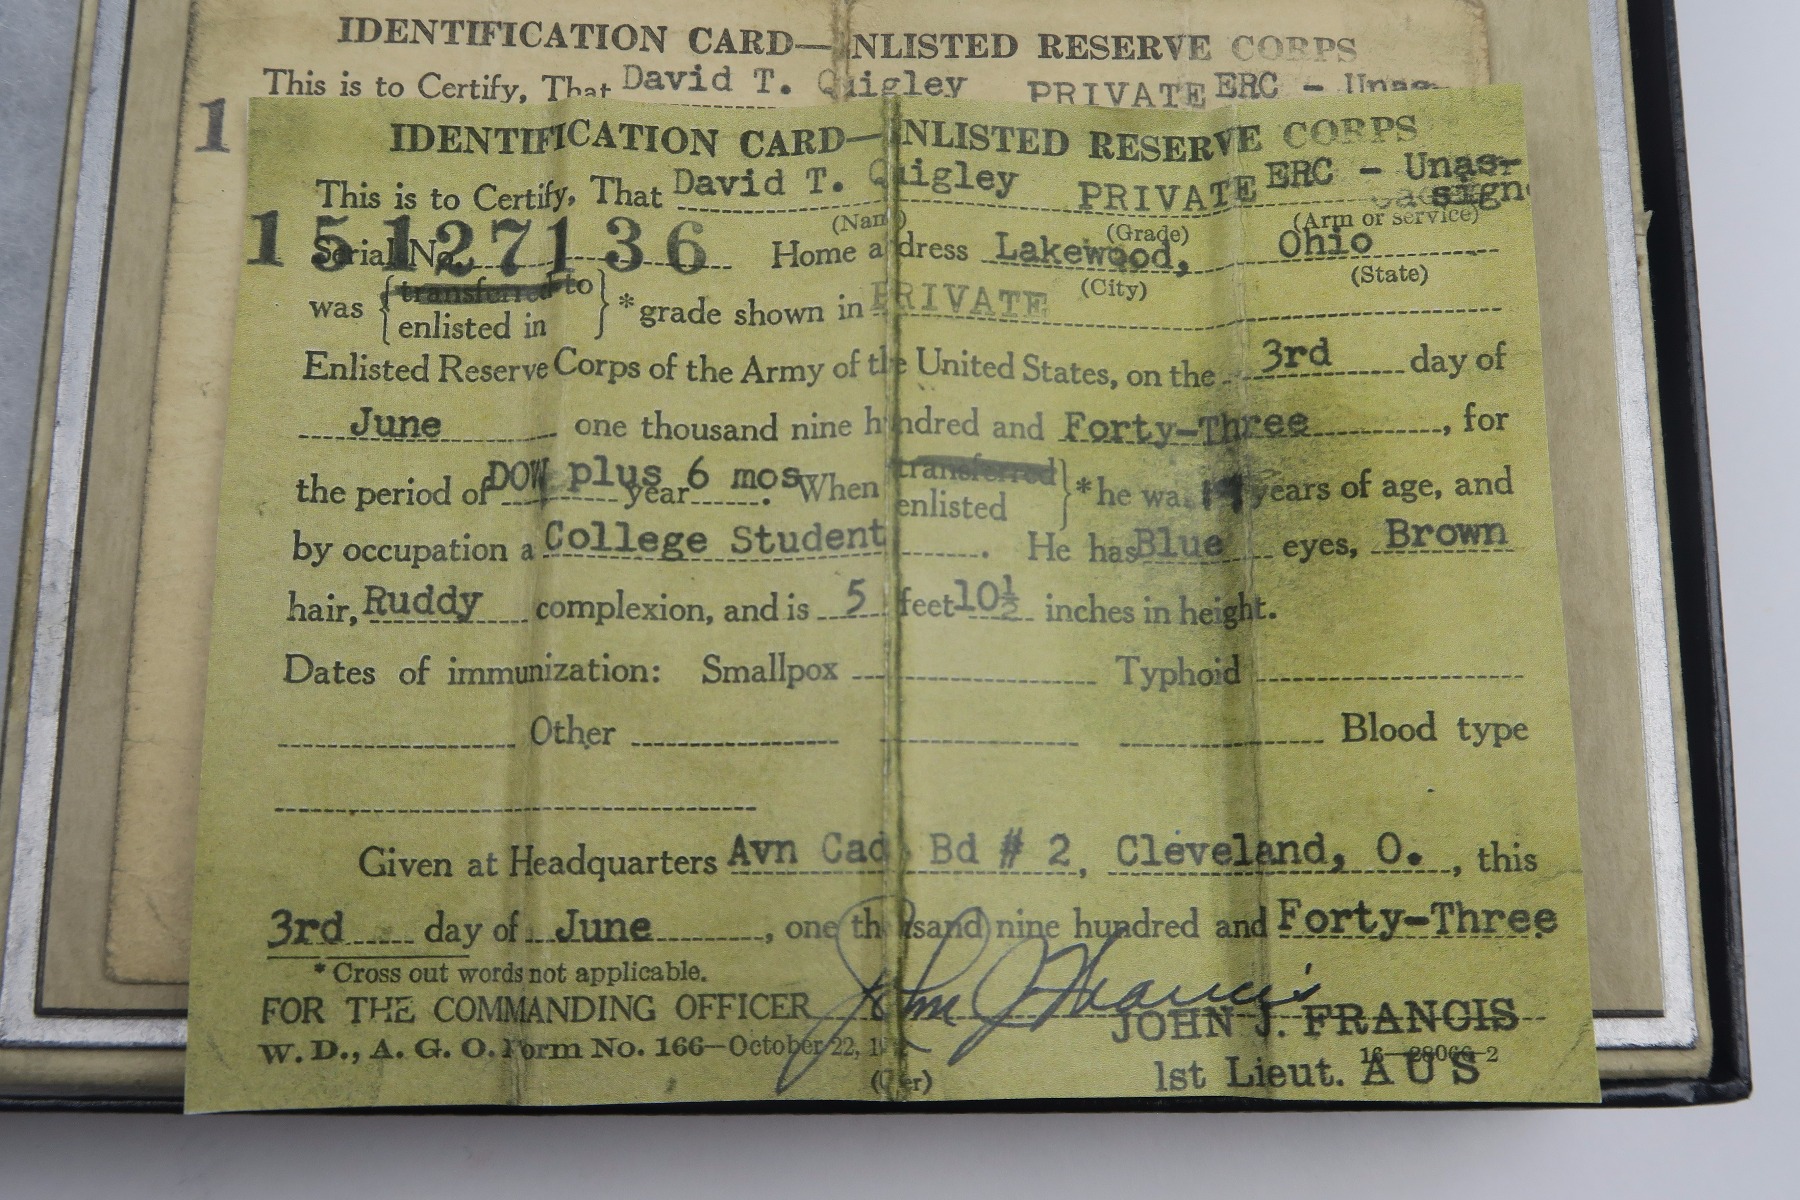 IDENTIFICATION CARD— NLISTED RESERVE CORPS
This is to Certify, That David T. Quigley PRIVATE ERC - Unas-
1
IDENTIFICATION CARD— NLISTED RESERVE CORPS
This is to Certify, That David T. Quigley PRIVATE ERC - Unas-
sign
(Name) (Grade) (Arm or service)
Serial No. 15127136 Home address Lakewood, Ohio
(City) (State)
was { transferred to
enlisted in } * grade shown in PRIVATE
Enlisted Reserve Corps of the Army of the United States, on the 3rd day of
June one thousand nine hundred and Forty-Three, for
the period of DOW plus 6 mos year. When transferred
enlisted } * he was years of age, and
by occupation a College Student. He has Blue eyes, Brown
hair, Ruddy complexion, and is 5 feet 10½ inches in height.
Dates of immunization: Smallpox Typhoid
Other Blood type
Given at Headquarters Avn Cad Bd # 2, Cleveland, O., this
3rd day of June, one thousand nine hundred and Forty-Three.
* Cross out words not applicable.
FOR THE COMMANDING OFFICER John J. Francis
JOHN J. FRANCIS
W. D., A. G. O. Form No. 166—October 22, 16—28066-2
(Over) 1st Lieut. AUS